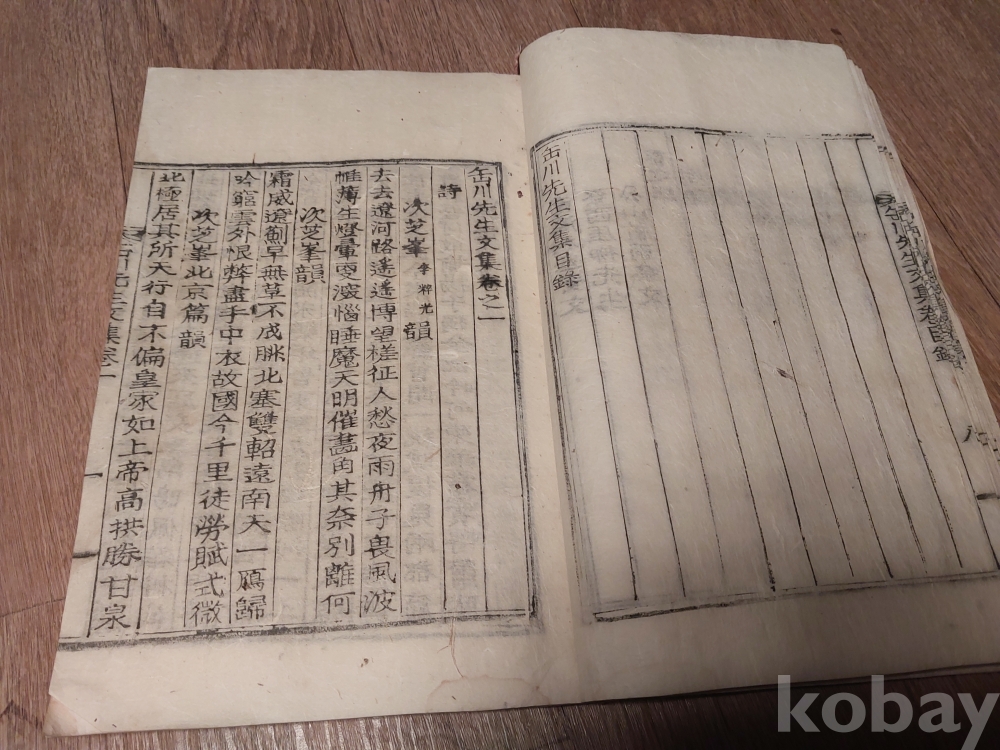 缶川先生文集目錄
缶川先生文集卷之一
詩
次芝峯李粹光韻
去去遼河路遙遙博望槎征人愁夜雨舟子畏風波
帷薄生燈暈衾湲惱睡魔天明催畫角其奈別離何
次芝峯韻
霜威遼薊早無草不成腓北塞雙軺遠南天一鴈歸
吟窮雲外恨弊盡手中衣故國今千里徒勞賦式微
次芝峯北京篇韻
北極居其所天行自不偏皇家如上帝高拱勝甘泉
kobay